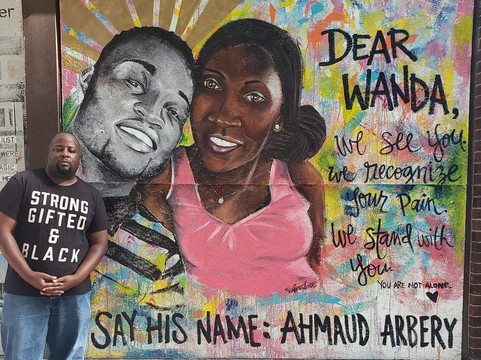 er
JUST
WERE
MAGIC
STRONG
GIFTED
&
BLACK
DEAR
WANDA,
We see you.
we recognize
your Pain.
We stand with
you.
YOU ARE NOT ALONE.
SAY HIS NAME: AHMAUD ARBERY